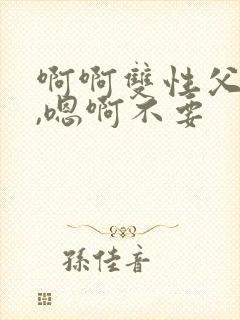 啊啊雙性父
,嗯啊不要
孫佳音